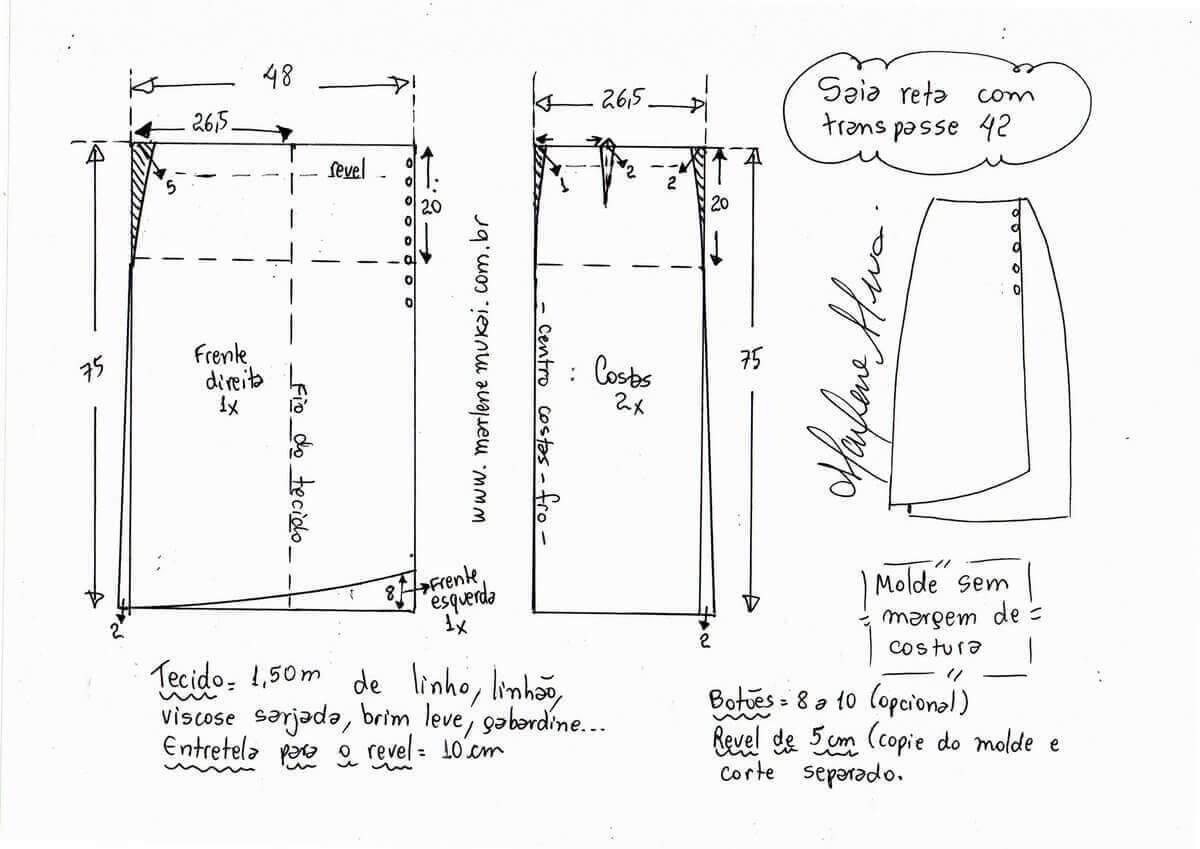 48
26,5
5
revel
20
75
Frente
direita
1x
Fio do tecido
8
Frente
esquerda
1x
2
www.marlenemukai.com.br
26,5
1
2
2
20
- centro costas - fio -
: Costas
2x
75
2
Saia reta com
transpasse 42
Molde sem
margem de
costura
Tecido = 1,50m de linho, linhão,
viscose sarjada, brim leve, gabardine...
Entretela para o revel = 10 cm
Botões = 8 a 10 (opcional)
Revel de 5 cm (copie do molde e
corte separado.